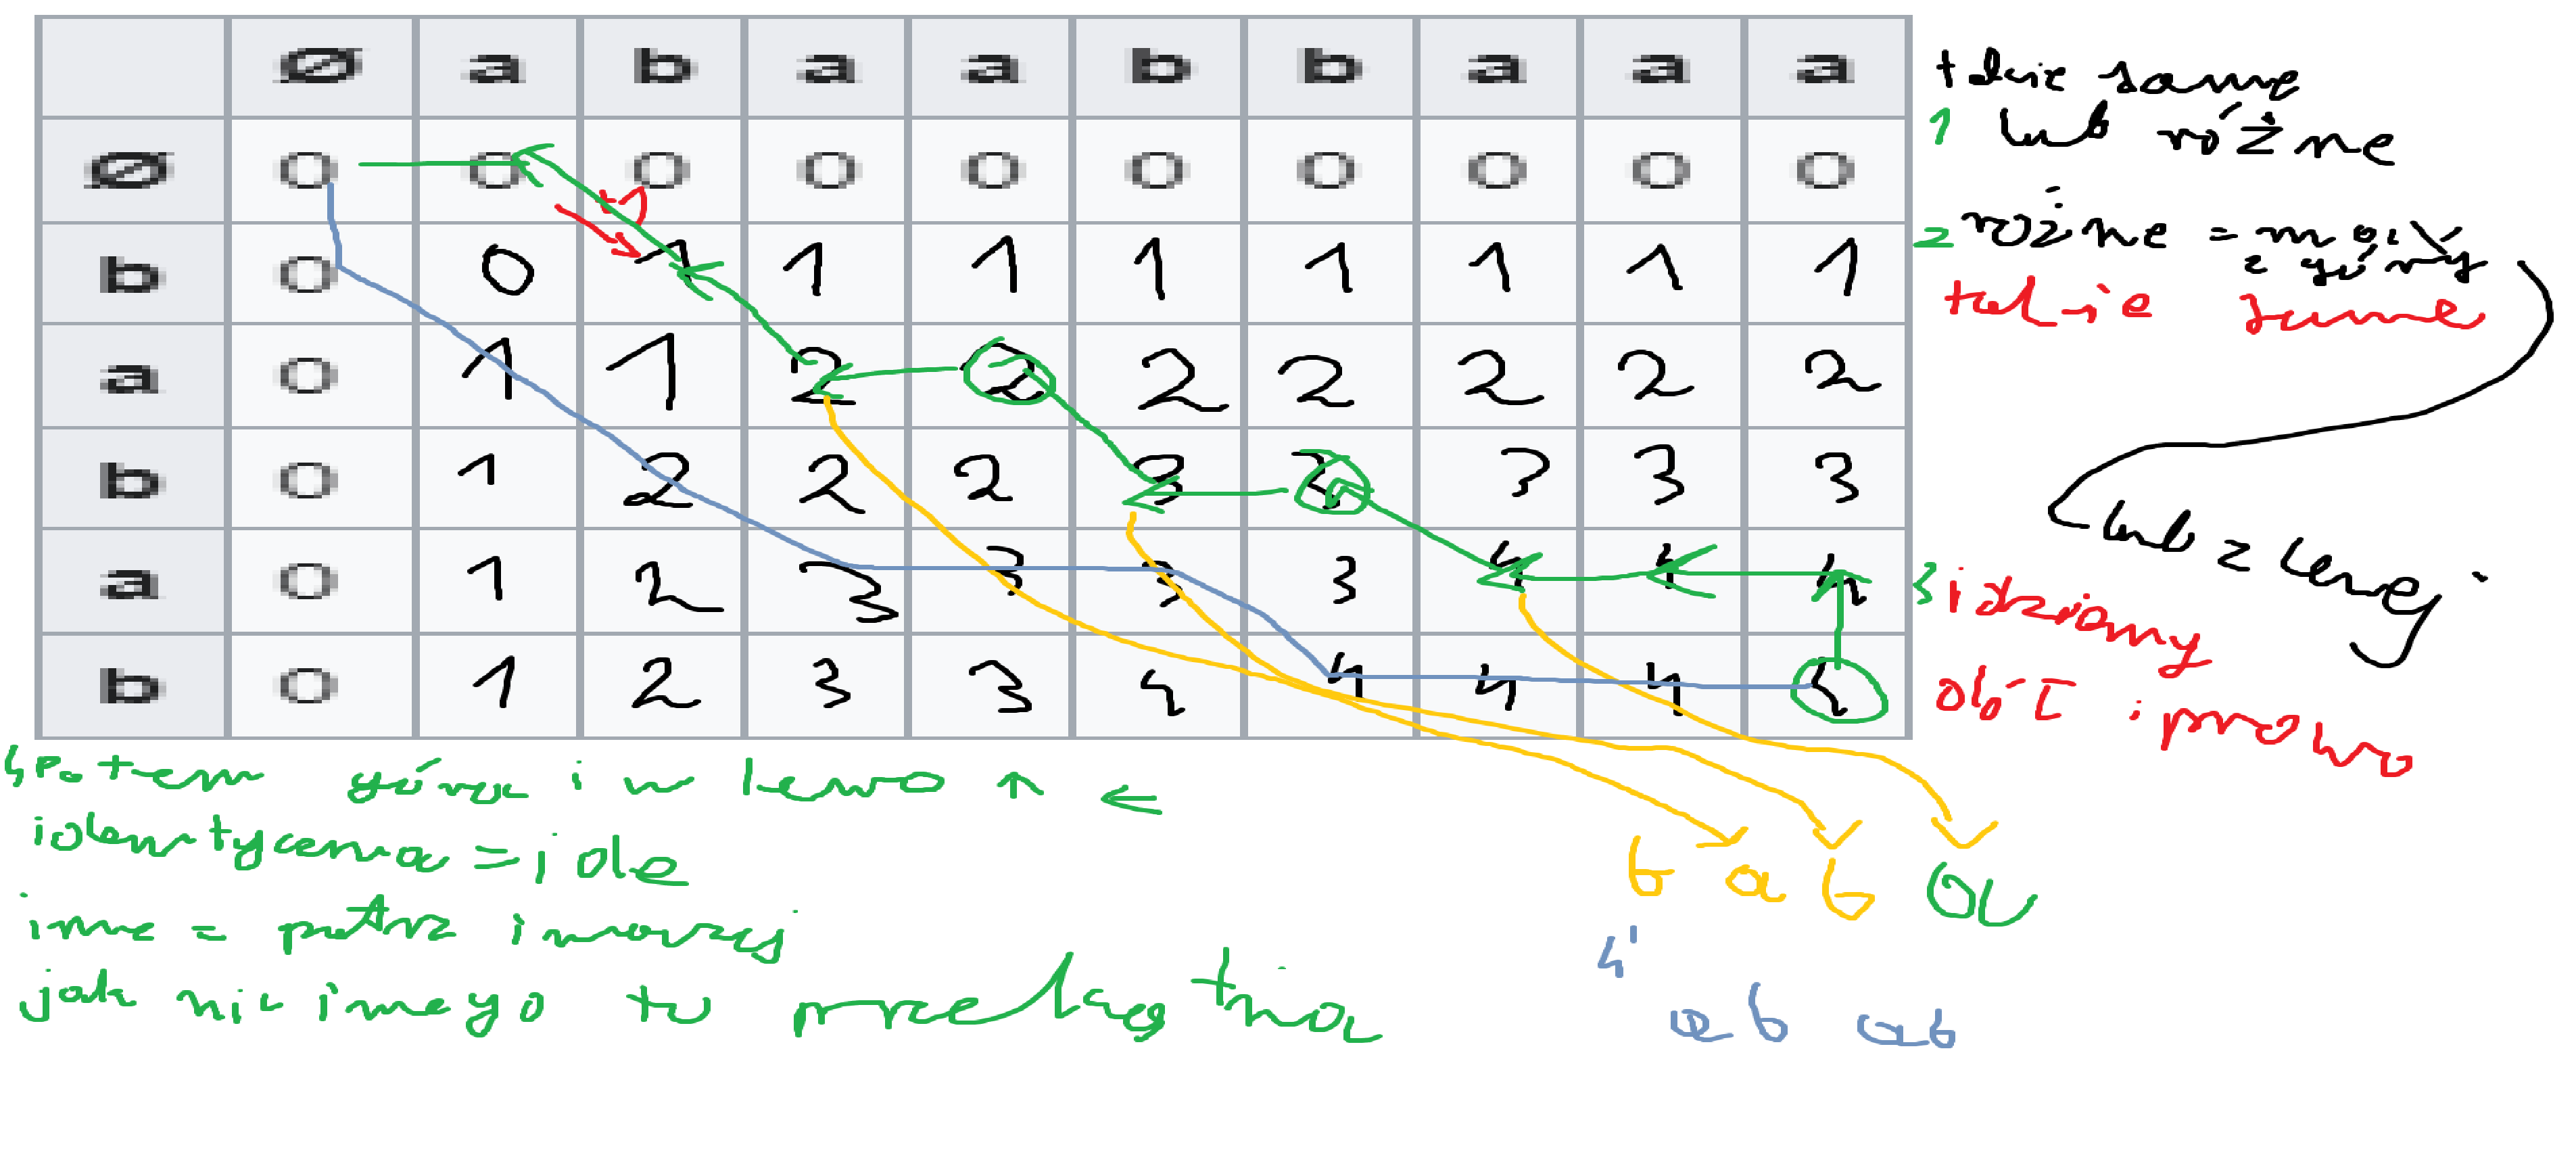 Ø a b a a b b a a a
Ø 0 0 0 0 0 0 0 0 0 0
b 0 0 1 1 1 1 1 1 1 1
a 0 1 1 2 2 2 2 2 2 2
b 0 1 2 2 2 3 3 3 3 3
a 0 1 2 3 3 3 3 4 4 4
b 0 1 2 3 3 4 4 4 4 4
takie same
1 lub różne
2 różne =
z góry
takie same
lub z lewej
3 idziemy
i prawo
4 Potem góra i w lewo ↑ ←
identyczna = ide
inne = patrz
jak nic innego to
b a b a
4'
ab ab